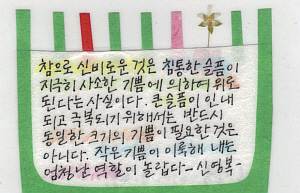 참으로 신비로운 것은 침통한 슬픔이
지극히 사소한 기쁨에 의하여 위로
된다는 사실이다. 큰 슬픔이 인내
되고 극복되기 위해서는 반드시
동일한 크기의 기쁨이 필요한 것은
아니다. 작은 기쁨이 이룩해 내는
엄청난 역할이 놀랍다- 신영복-